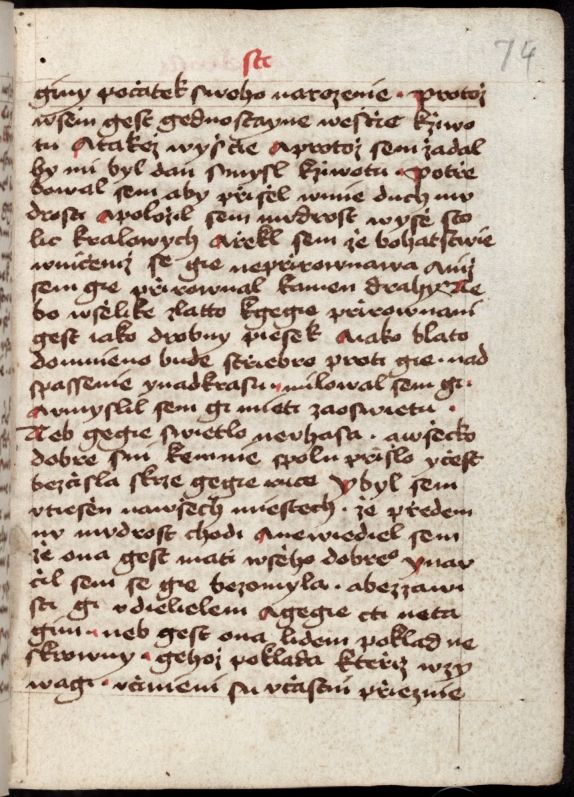 74
giny počatek sweho narozenie · Protož
wsem gest gednostayne wesstie kžiwo
tu Atakež wyštie Aprotož sem žadal
by mi byl dan smysl kžiwotu · Potře
bowal sem aby přišel wmie duch mu
drosti Apoložil sem mudrost wyše sto
lic kralowych Ařekl sem že bohatstwie
wničemž se gie nepřirownawa Aniž
sem gie přirownal kamen drahy Ne
bo wšelike zlatto kgegie přirownani
gest iako drobny piesek Aiako blato
domnieno bude střiebro proti gie · nad
spassenie ynadkrasu · milowal sem gi ·
Aumyslil sem gi mieti zaoswietu ·
Neb gegie swietlo neuhasa · awšecko
dobre sni kemnie spolu přišlo yčest
bezčisla skrze gegie ruce Ybyl sem
utiešen nawšech miestech · že předem
nu mudrost chodi Anewiediel sem
že ona gest mati wšeho dobreo ynau
čil sem se gie bezomyla · abezzawi
sti gi udielelem Agegie cti neta
gim · neb gest ona lidem poklad ne
skrowny · gehož poklada kteřiz wzy
wagi · učinieni su učastni přieznie